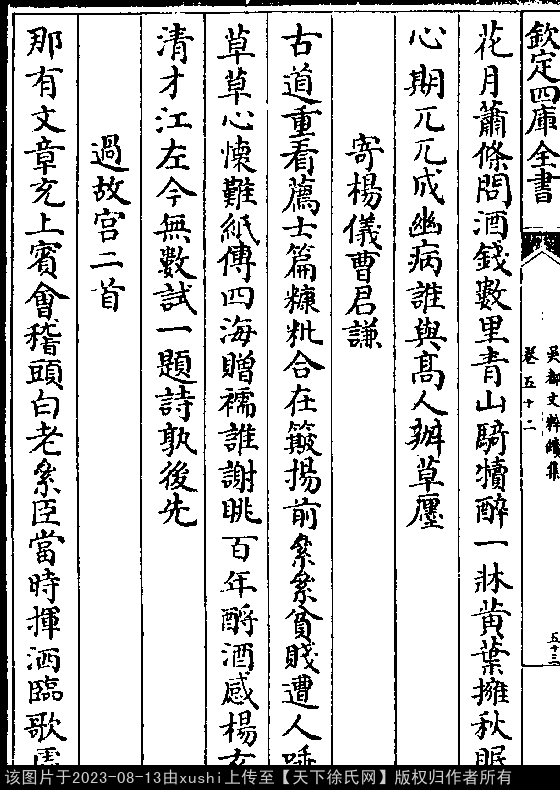 欽定四庫全書
吳都文粹續集
卷五十二
五十三
花月蕭條問酒錢數里青山騎犢醉一牀黄葉擁秋眠
心期兀兀成幽病誰與髙人辦草廛
寄楊儀曹君謙
古道重看薦士篇糠粃合在簸揚前纍纍貧賤遭人唾
草草心懐難紙傳四海贈襦誰謝眺百年酹酒感楊
清才江左今無數試一題詩孰後先
過故宫二首
那有文章充上賓會稽頭白老纍臣當時揮洒臨歌
该图片于2023-08-13由xushi上传至【天下徐氏网】版权归作者所有